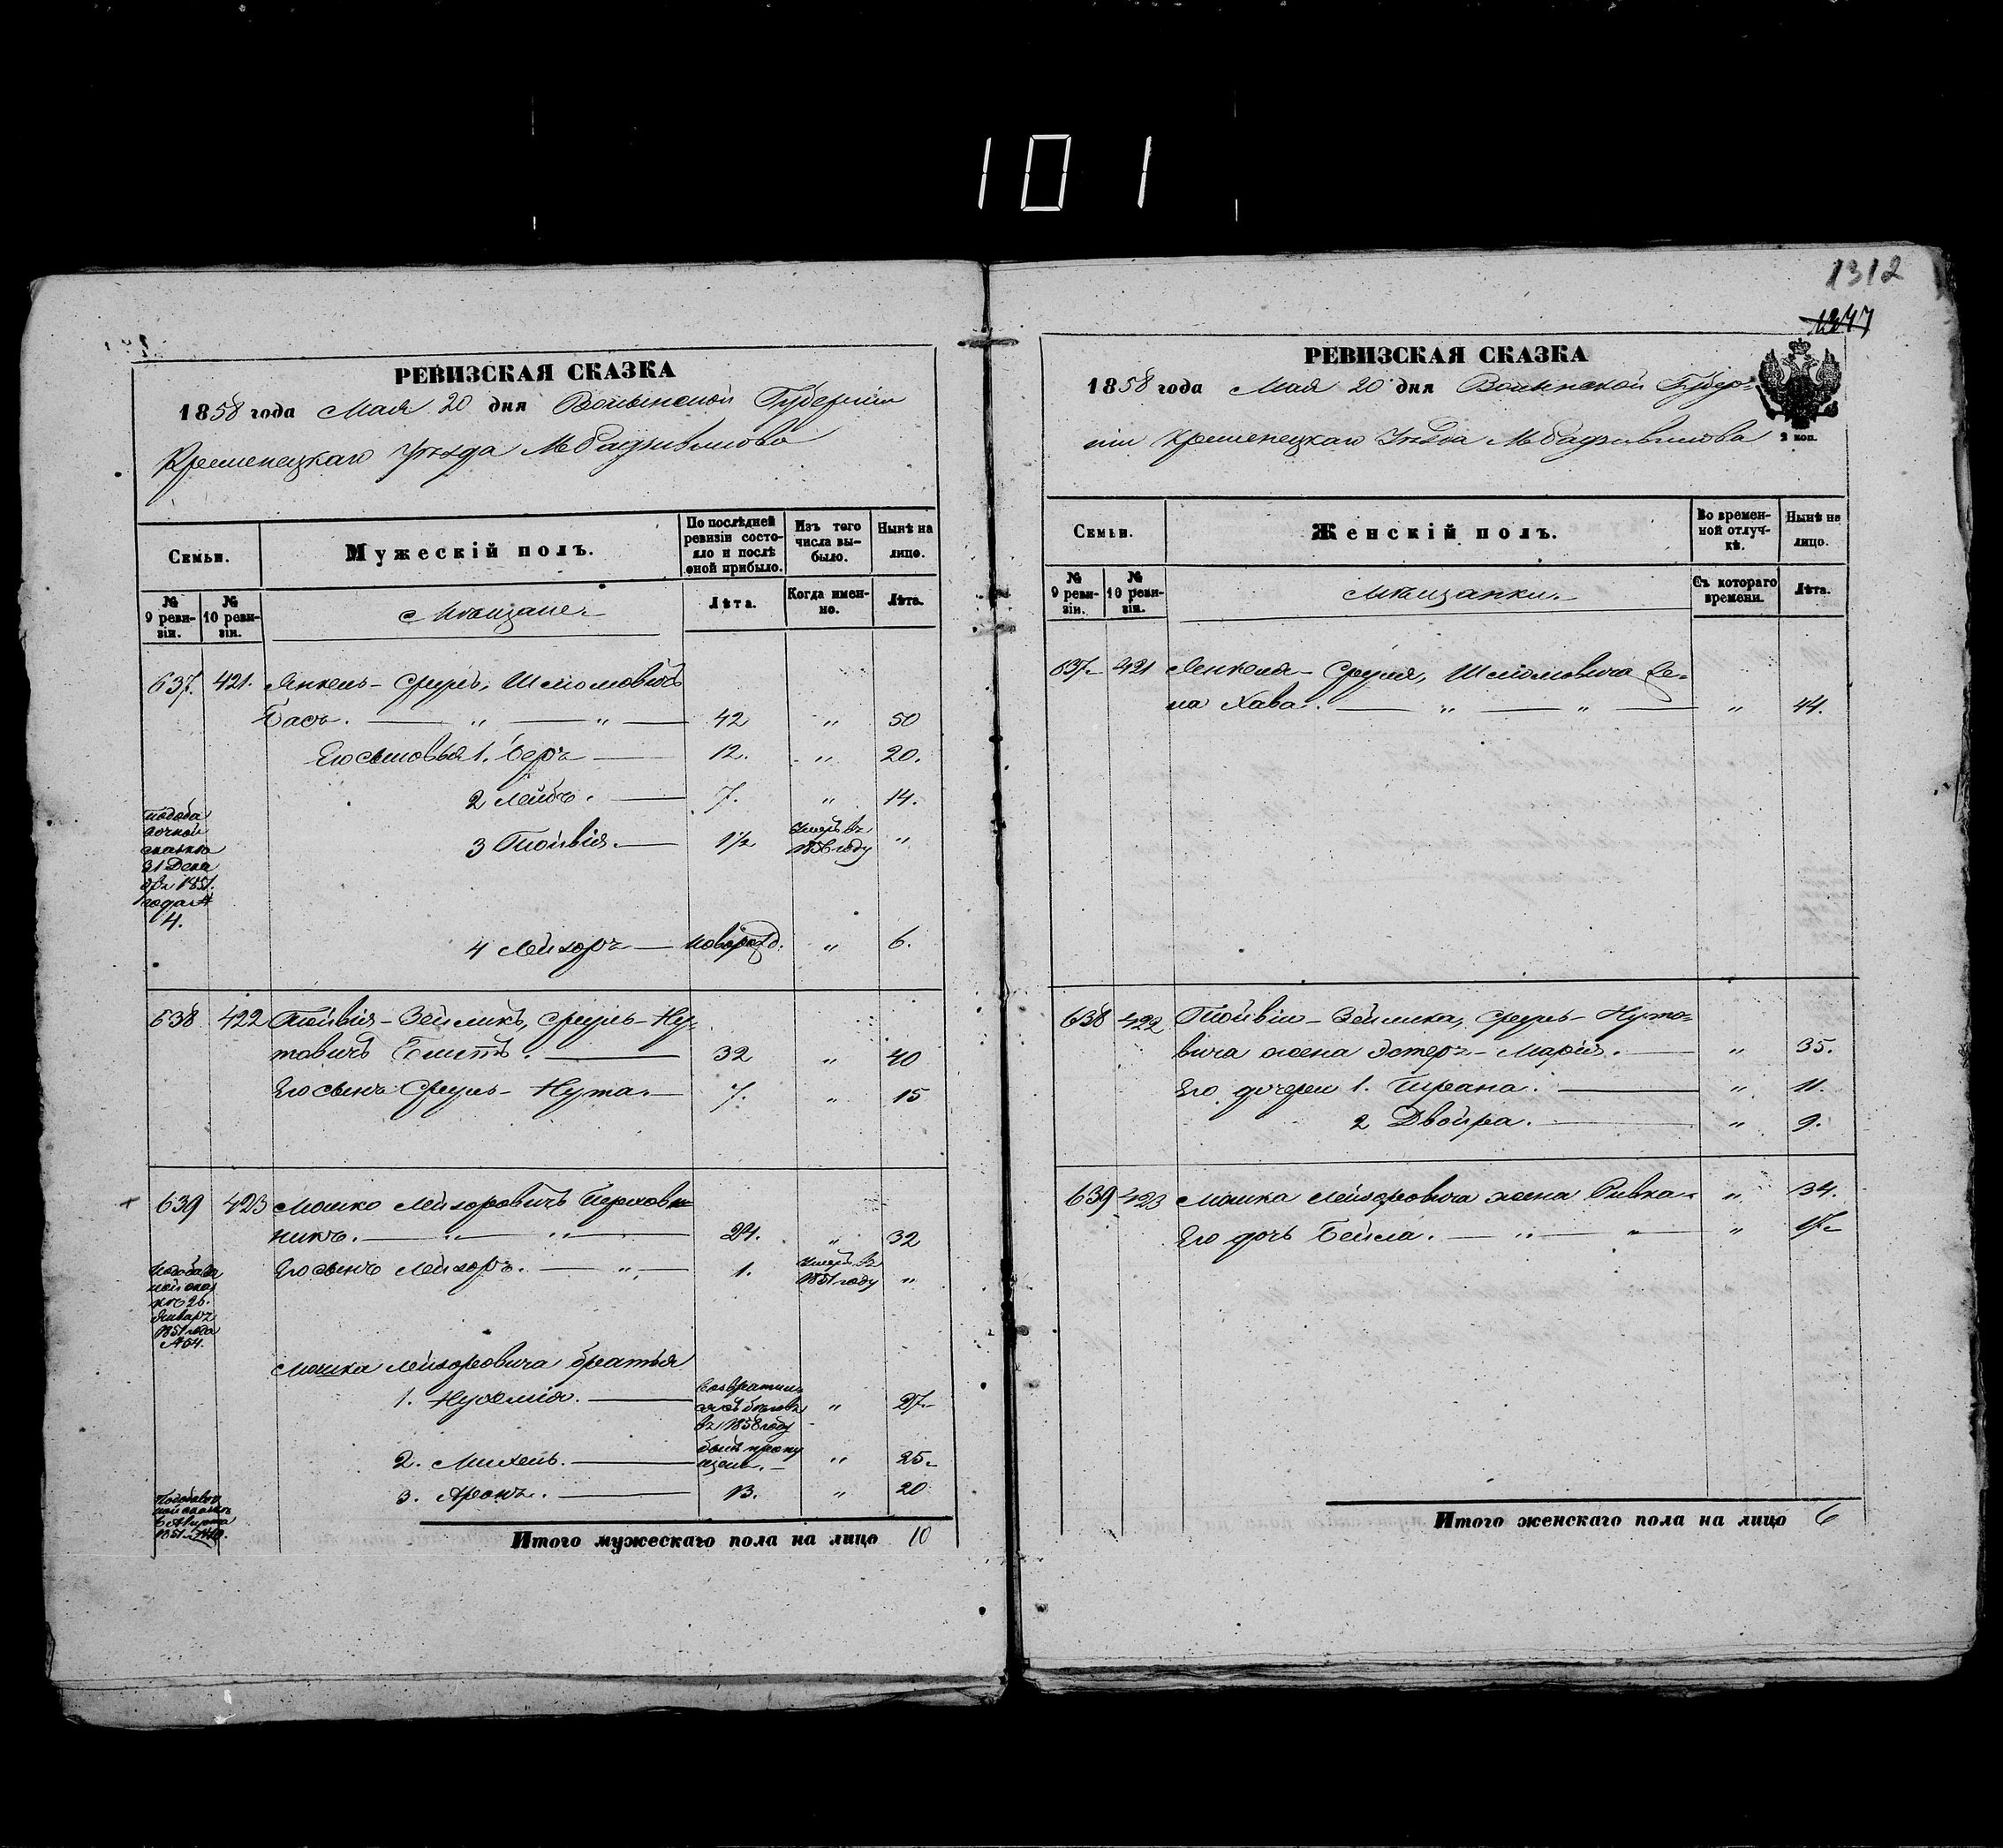 101
РЕВИЗСКАЯ СКАЗКА
1858 года Мая 20 дня Волынской Губерніи
Кременецкаго уѣзда М Радзивилова
Семьи.
Мужескій полъ.
По послѣдней ревизіи состояло и послѣ оной прибыло.
Изъ того числа выбыло.
Нынѣ на лицо.
№ 9 ревизіи.
№ 10 ревизіи.
Мѣщане
Лѣта.
Когда именно.
Лѣта.
637. 421. Янкель-Сруль, Шлiомовичъ
Басъ. — „ — „ — 42 „ 50
Его сыновья 1. Беръ — 12. „ 20.
2 Лейбъ. — 7. „ 14.
3 Тойвія. — 1½ умеръ въ 1856 году „
31 Дека
1851.
года №
4.
4 Лейзоръ — новорожд. „ 6.
638 422 Тойвія-Зейликъ, Сруль-Ну-
товичъ — 32 „ 40
Его сынъ Сруль-Нута. — 7. „ 15
639 423 Мошко Лейзоровичъ
никъ. — „ — „ — 24. „ 32
Его сынъ Лейзоръ. — „ — 1. умеръ въ 1851 году „
26.
Январ
1851 года
Мошка Лейзоровича братья
1. Нухемія. — въ 1858 году „ 27
2. Михель. — былъ пропущен. — „ 25
3. Аронъ. — 13. „ 20
Итого мужескаго пола на лицо 10
1312
РЕВИЗСКАЯ СКАЗКА
1858 года Мая 20 дня Волынской Губер-
ніи Кременецкаго Уѣзда М Радзивилова
2 коп.
Семьи.
Женскій полъ.
Во временной отлучкѣ.
Нынѣ на лицо.
№ 9 ревизіи.
№ 10 ревизіи.
Мѣщанки.
Съ котораго времени.
Лѣта.
637 421 Янкеля-Сруля, Шлiомовича же-
на Хава. — „ — „ — „ 44.
638 422 Тойвіи-Зейлика, Сруль-Нуто-
вича жена Эстеръ-Марія. — „ 35.
Его дочери 1. — „ 11.
2 Двойра. — „ 9.
639 423 Мошка Лейзоровича жена Ривка „ 34.
Его дочь Бейла. — „ — „ — „ 17
Итого женскаго пола на лицо 6